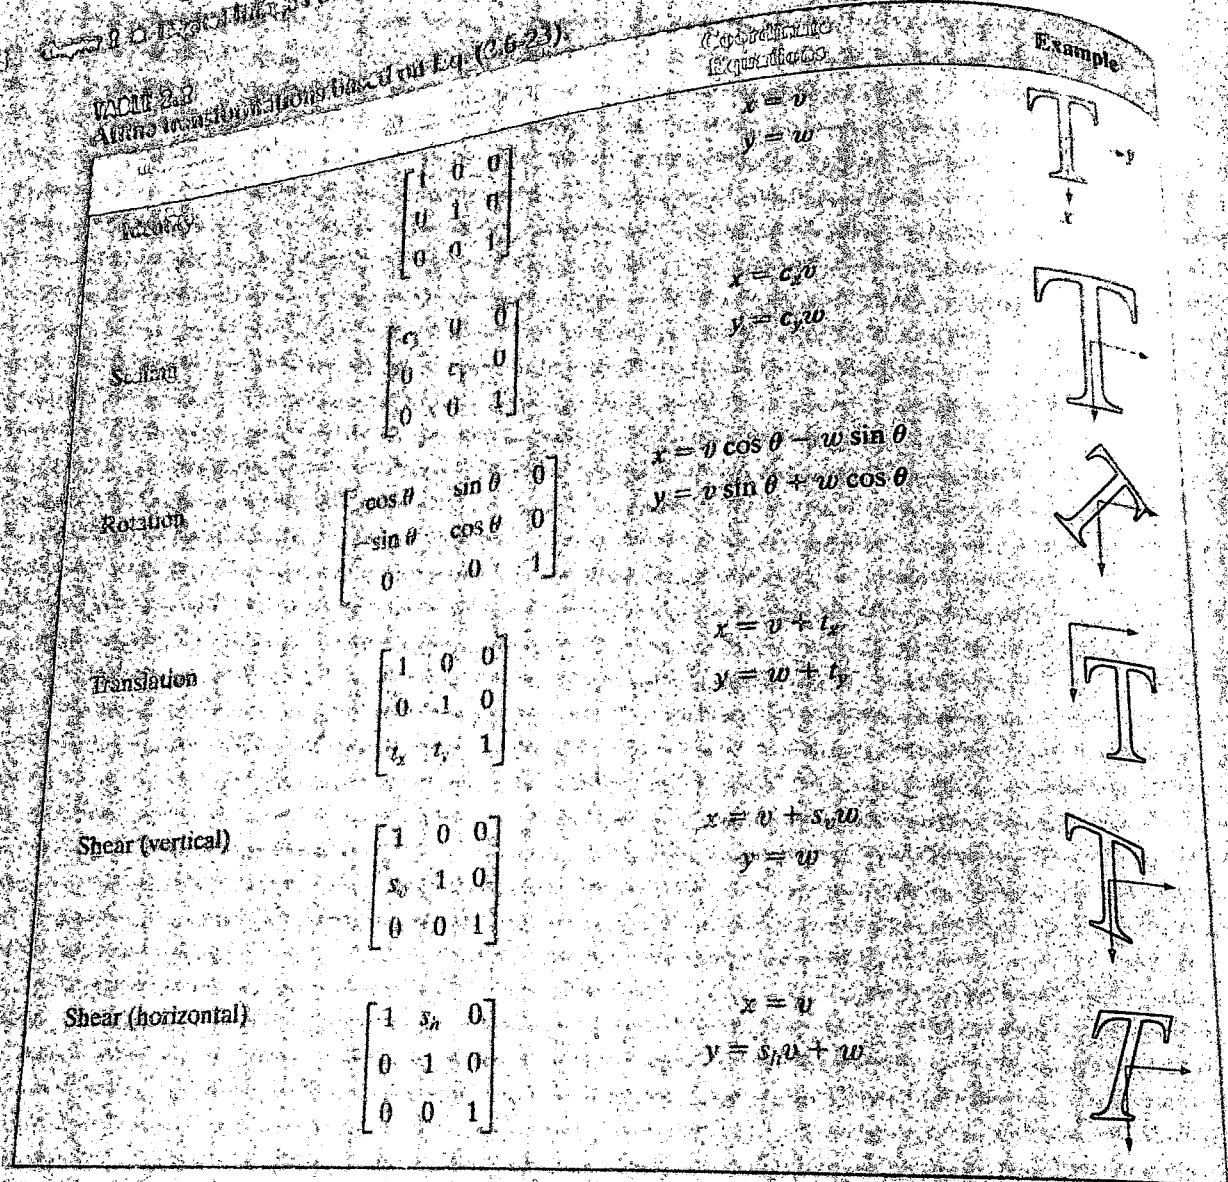 TABLE 2.2
Affine transformations based on Eq. (2.6-23).
Coordinate Equations Example
Identity
[1 0 0
0 1 0
0 0 1]
x = v
y = w
y
x
Scaling
[cₓ 0 0
0 cᵧ 0
0 0 1]
x = cₓv
y = cᵧw
Rotation
[cos θ sin θ 0
−sin θ cos θ 0
0 0 1]
x = v cos θ − w sin θ
y = v sin θ + w cos θ
Translation
[1 0 0
0 1 0
tₓ tᵧ 1]
x = v + tₓ
y = w + tᵧ
Shear (vertical)
[1 0 0
sᵥ 1 0
0 0 1]
x = v + sᵥw
y = w
Shear (horizontal)
[1 sₕ 0
0 1 0
0 0 1]
x = v
y = sₕv + w